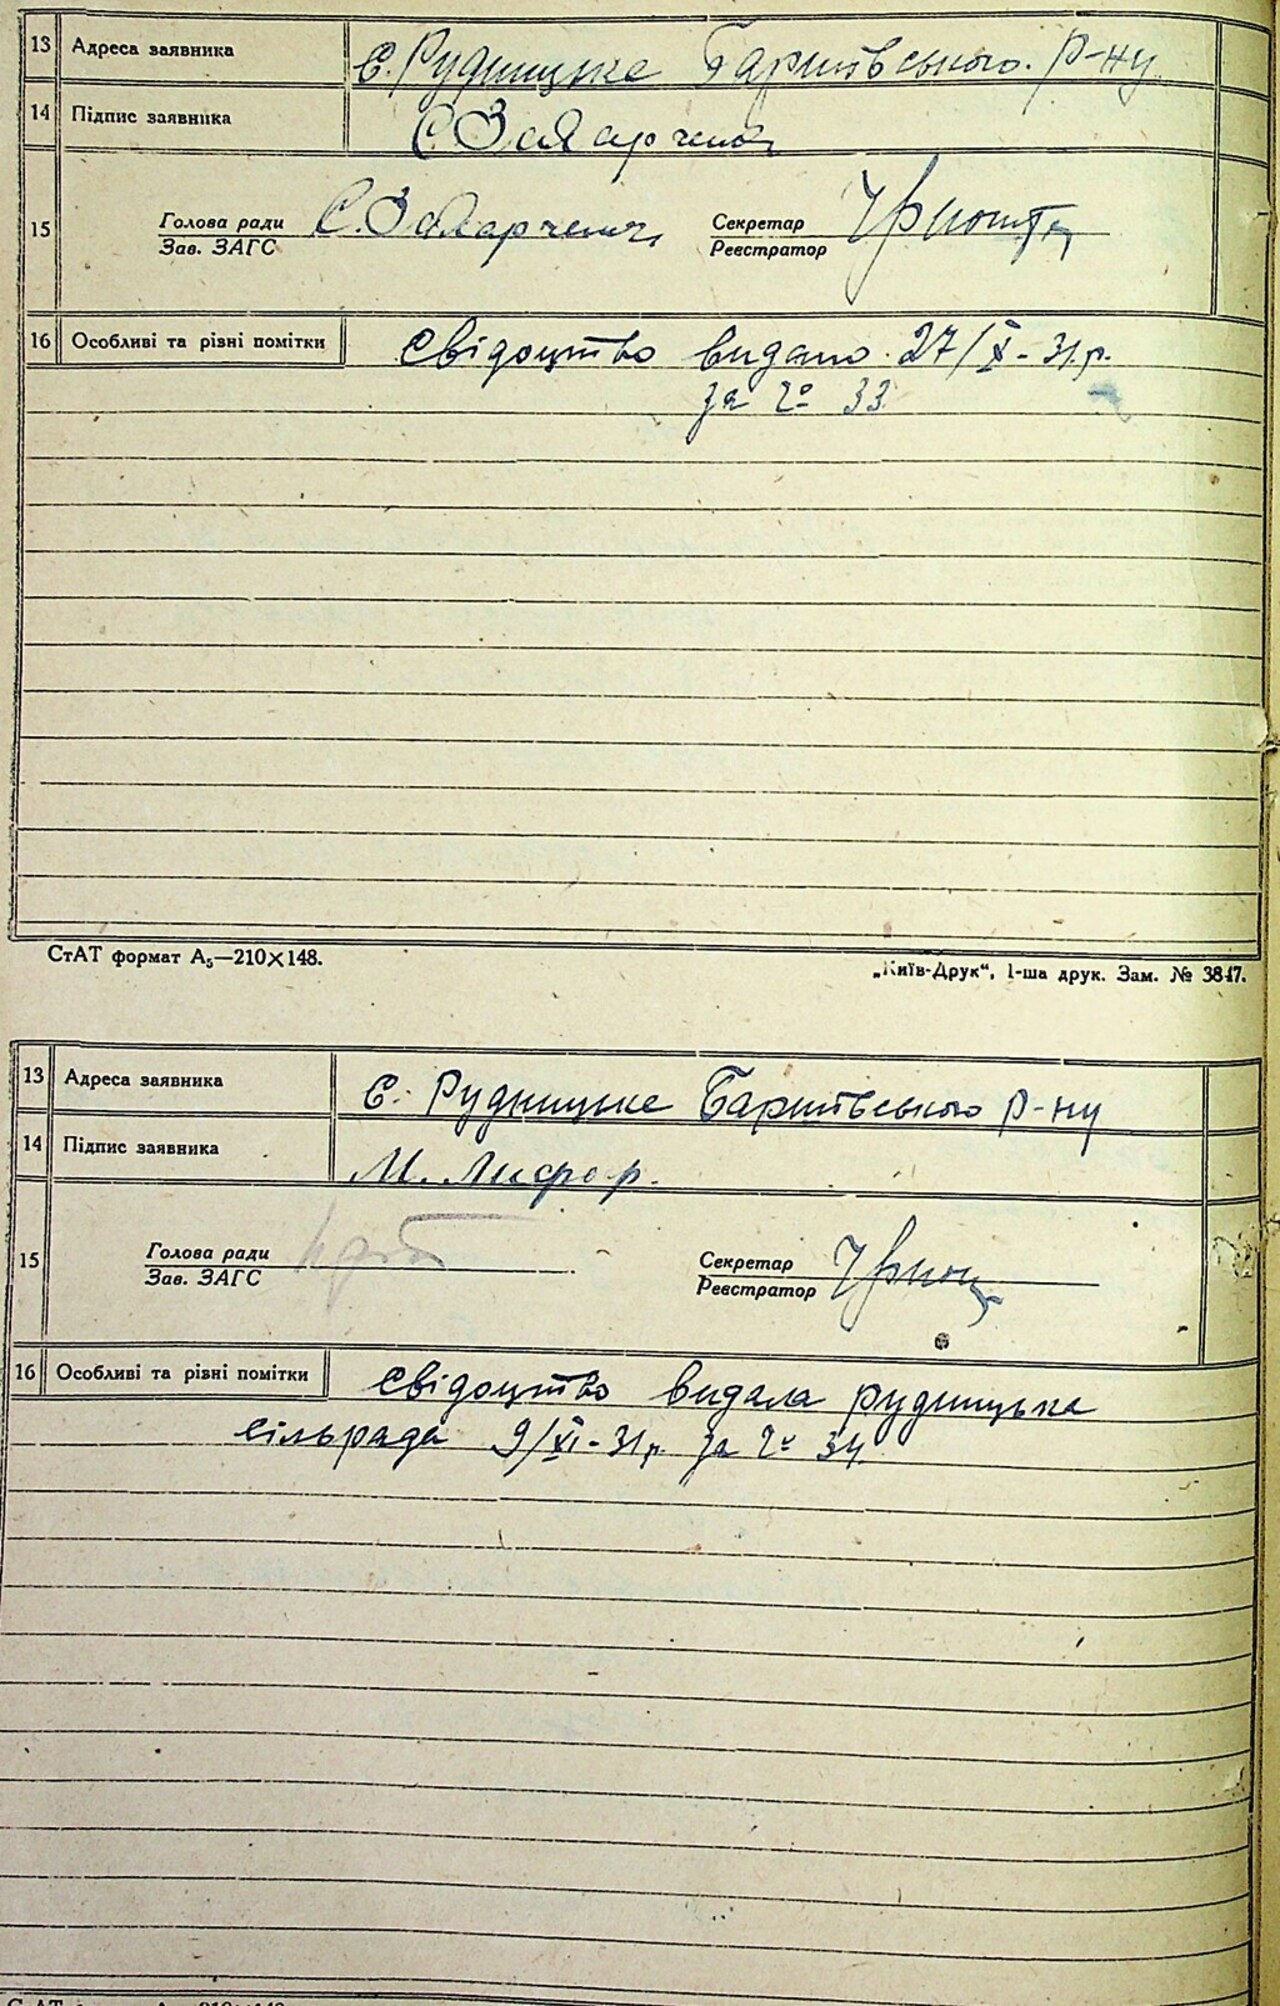 13 Адреса заявника с. Рудницьке Баришівського р-ну
14 Підпис заявника С Захарченко
15 Голова ради С. Захарченко Секретар
Зав. ЗАГС Реєстратор
16 Особливі та різні помітки Свідоцтво видано 27/X-31.р.
за № 33
СтАТ формат А₅—210×148.
„Київ-Друк“, 1-ша друк. Зам. № 3847.
13 Адреса заявника с. Рудницьке Баришівського р-ну
14 Підпис заявника М. Лифор.
15 Голова ради Секретар
Зав. ЗАГС Реєстратор
16 Особливі та різні помітки Свідоцтво видала рудницька
сільрада 9/XI-31р. за № 34